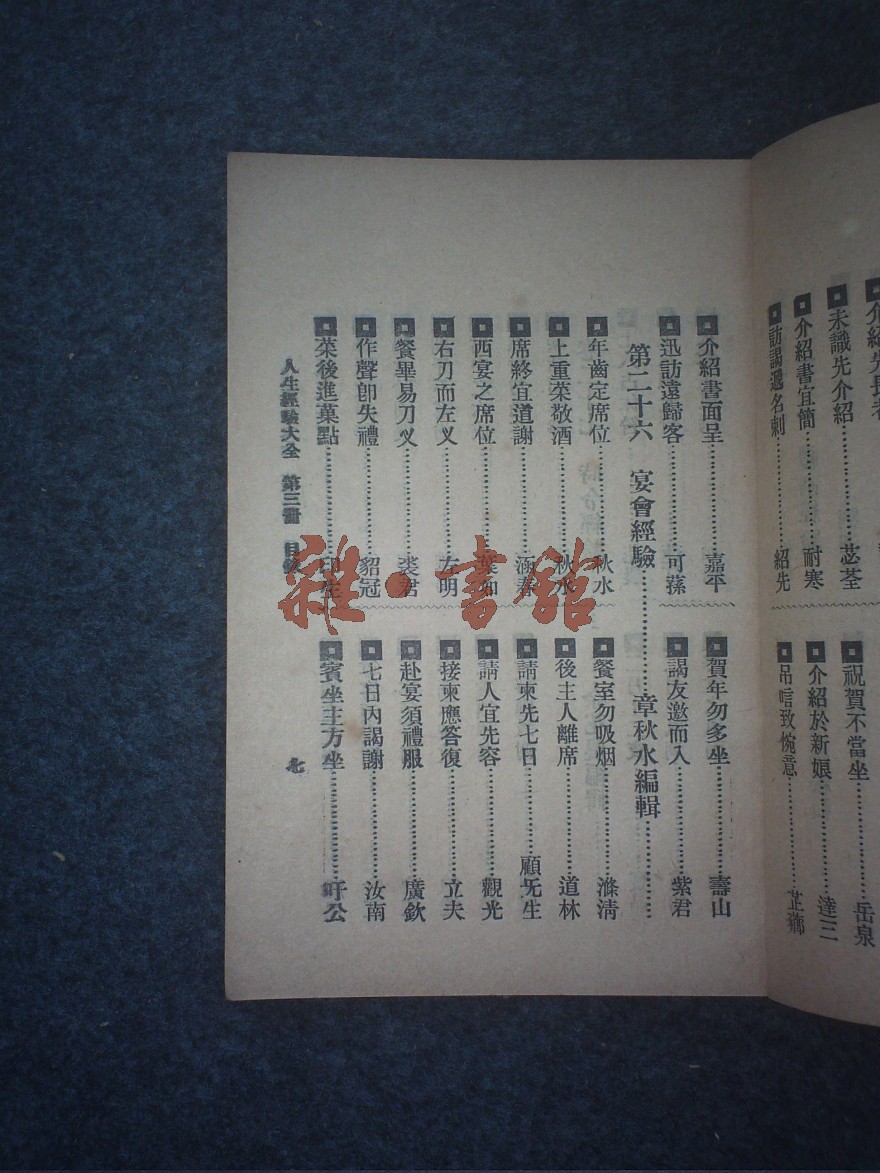 未識先介紹………苾荃
介紹書宜簡………耐寒
訪謁遞名刺………紹先
祝賀不當坐………岳泉
介紹於新娘………達三
弔唁致惋意………芷薌
介紹書面呈………嘉平
迅訪遠歸客………可蓀
賀年勿多坐………壽山
謁友邀而入………紫君
第二十六 宴會經驗………章秋水編輯………
年齒定席位………秋水
上重菜敬酒………秋水
席終宜道謝………涵春
西宴之席位………葉如
右刀而左叉………左明
餐畢易刀叉………裘君
作聲卽失禮………貂冠
菜後進菓點………
餐室勿吸烟………滌清
後主人離席………道林
請柬先七日………顧旡生
請人宜先容………觀光
接柬應答復………立夫
赴宴須禮服………廣欽
七日內謁謝………汝南
賓坐主方坐………吁公
人生經驗大全 第三冊 目錄
七
雜·書館